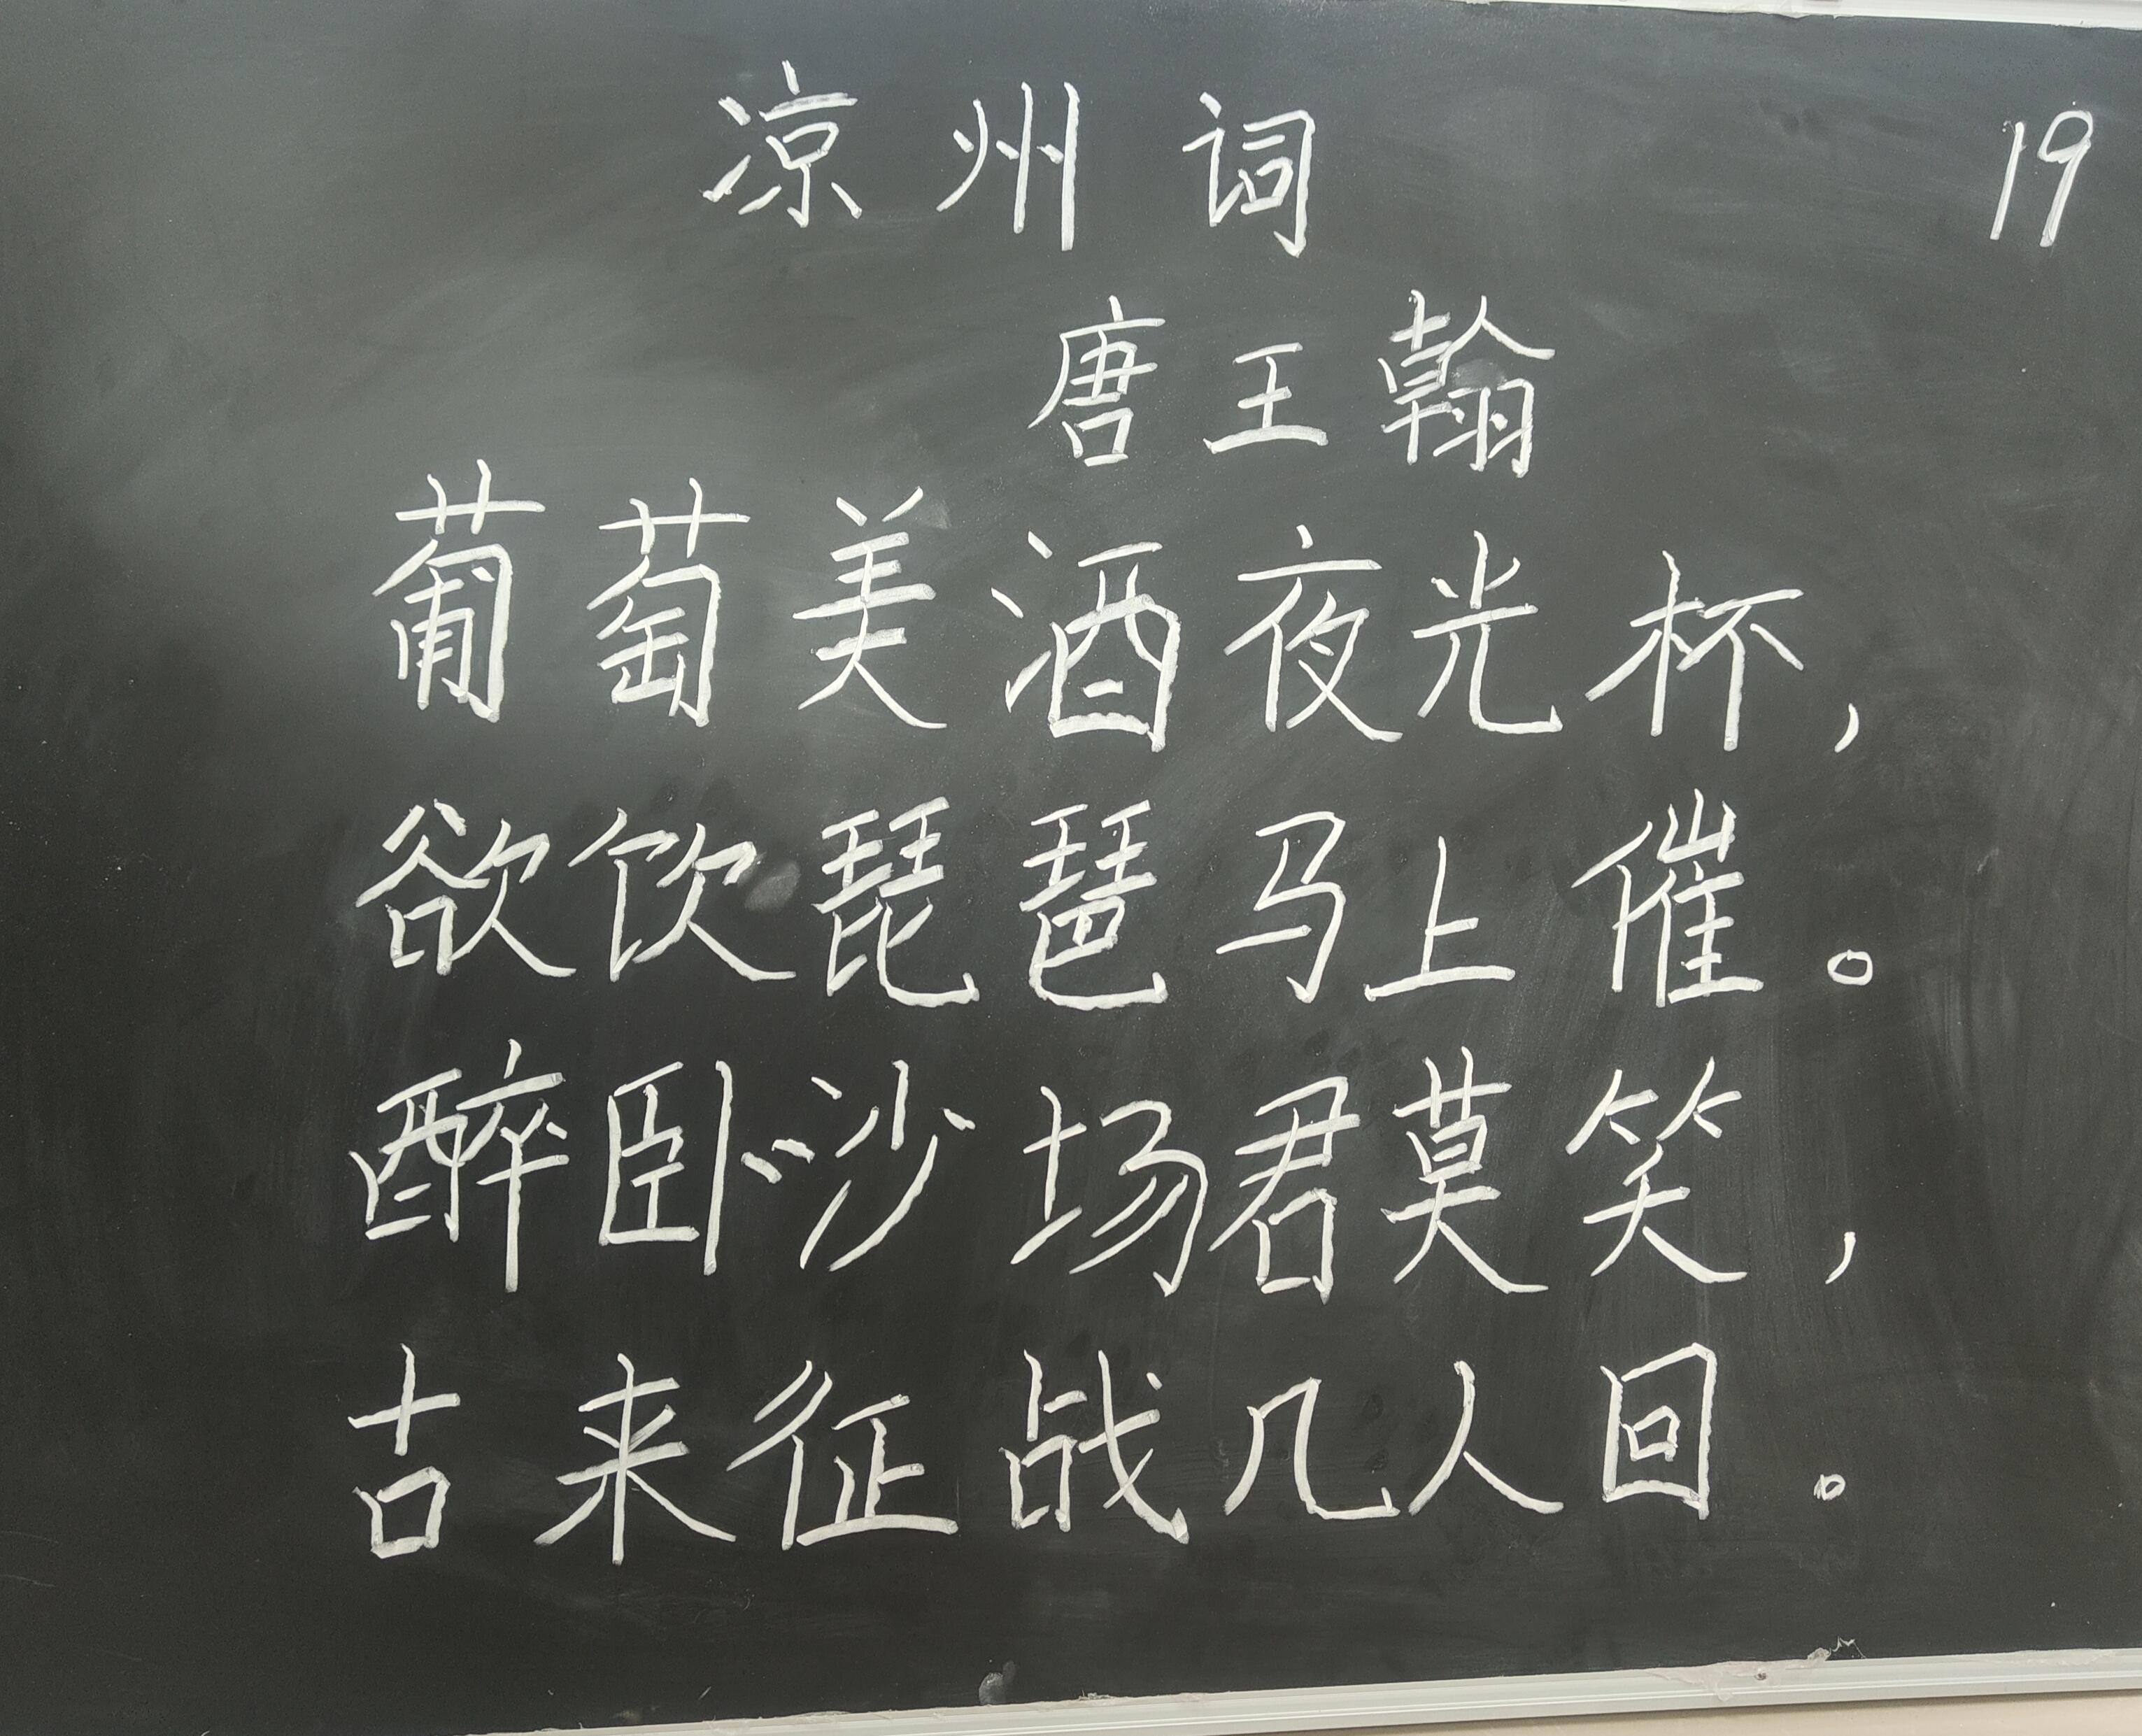 凉州词
19
唐王翰
葡萄美酒夜光杯,
欲饮琵琶马上催。
醉卧沙场君莫笑,
古来征战几人回。